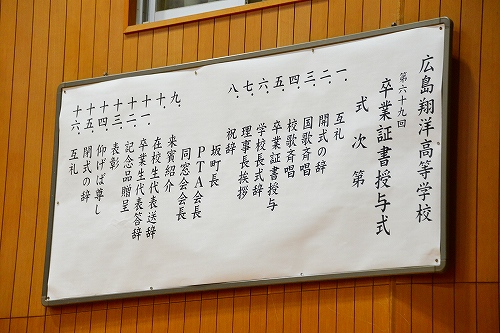 広島翔洋高等学校
第六十九回
卒業証書授与式
式次第
一、互礼
二、開式の辞
三、国歌斉唱
四、校歌斉唱
五、卒業証書授与
六、学校長式辞
七、理事長挨拶
八、祝辞
坂町長
PTA会長
同窓会会長
九、来賓紹介
十、在校生代表送辞
十一、卒業生代表答辞
十二、記念品贈呈
十三、表彰
十四、仰げば尊し
十五、閉式の辞
十六、互礼